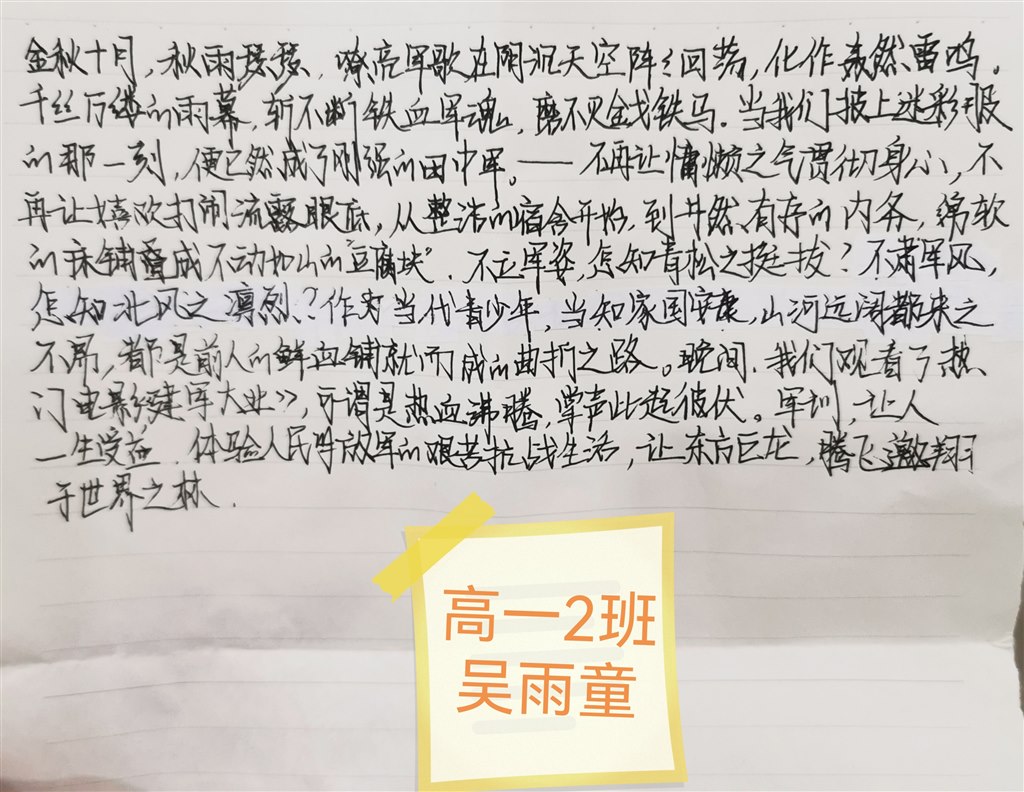 金秋十月，秋雨瑟瑟，嘹亮军歌在阴沉天空阵阵回荡，化作轰然雷鸣。
千丝万缕的雨幕，斩不断铁血军魂，磨不灭金戈铁马。当我们披上迷彩服
的那一刻，便已然成了刚强的田中军。——不再让慵懒之气贯彻身心，不
再让嬉欢打闹流露眼底，从整洁的宿舍开始，到井然有序的内务，绵软
的床铺叠成不动如山的“豆腐块”．不立军姿，怎知青松之挺拔？不肃军风，
怎知北风之凛烈？作为当代青少年，当知家国安康，山河远阔都来之
不易，都是前人的鲜血铺就而成的曲折之路。晚间，我们观看了热
门电影《建军大业》，可谓是热血沸腾，掌声此起彼伏。军训，让人
一生受益．体验人民解放军的艰苦抗战生活，让东方巨龙，腾飞遨翔
于世界之林．
高一2班
吴雨童